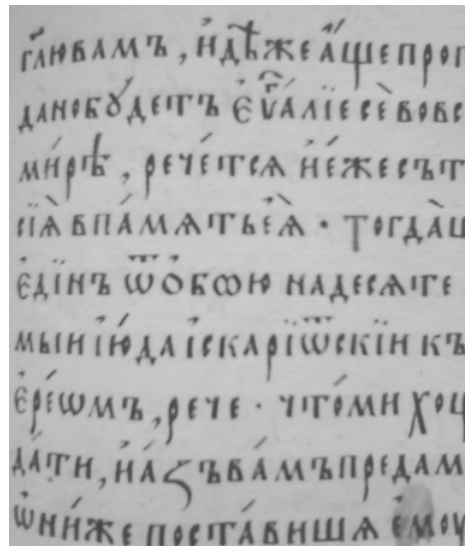 гл҃ю вамъ , и҆дѣ́же а҆́ще проп
дано бꙋ́детъ є҆ѵⷢ҇а́лїе сѐ во вс
ми́рѣ , рече́тся и҆ є҆́же сът
сїѧ̀ в па́мѧть є҆ѧ̀ · тогда̀ ш
є҆ди́нъ ѿ ѻ҆бою на десѧте
мый і҆ю́да і҆скарїѡ́тскїй къ
є҆ре́ѡмъ , рече · что́ ми хощ
да́ти , и҆ а҆́зъ ва́мъ предам
ѡ҆ни́ же поста́вишѧ є҆моу